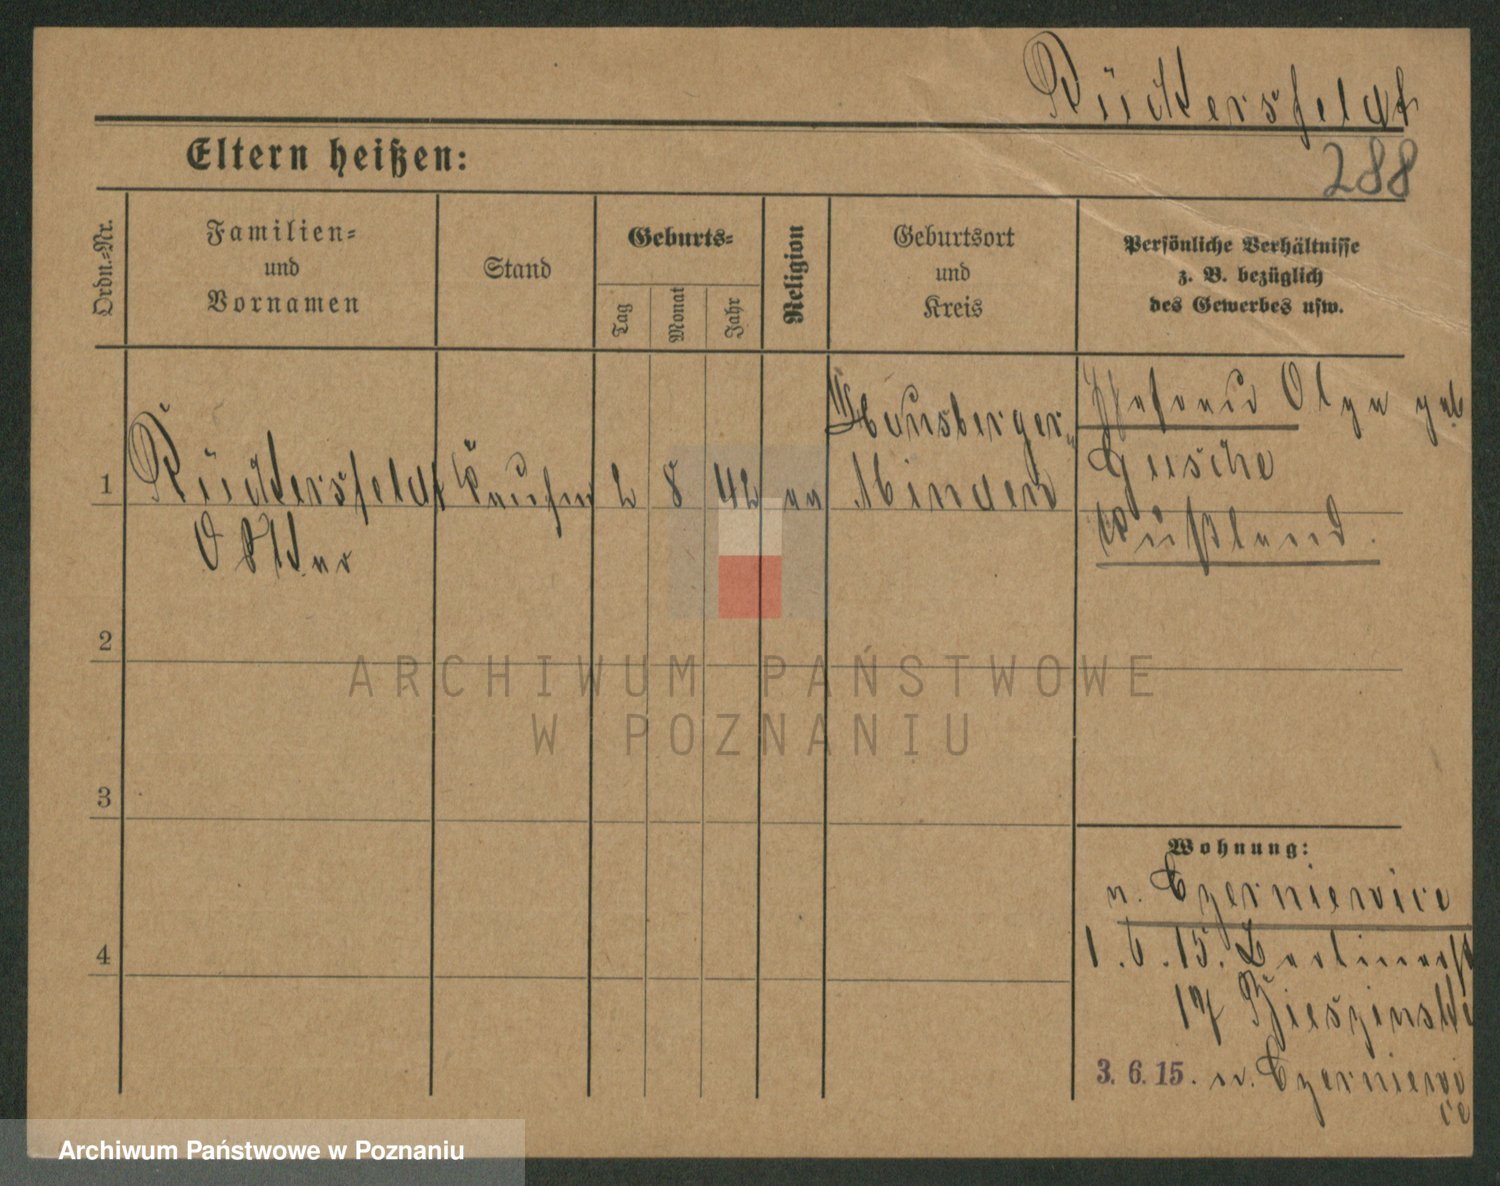 Rückersfeldt
288
Eltern heißen:
Ordn.-Nr.
Familien-
und
Vornamen
Stand
Geburts-
Tag
Monat
Jahr
Religion
Geburtsort
und
Kreis
Persönliche Verhältnisse
z. B. bezüglich
des Gewerbes usw.
1
Rückersfeldt
Kaufm
2
8
42
Hausberge
Minden
Ehefrau Olga geb
Gusche
Rußland.
2
3
4
Wohnung:
n. Czerniewice
1.6.15. Berlinerst
17 Bieszinski
3. 6. 15. n. Czerniewi
ce
ARCHIWUM PAŃSTWOWE
W POZNANIU
Archiwum Państwowe w Poznaniu